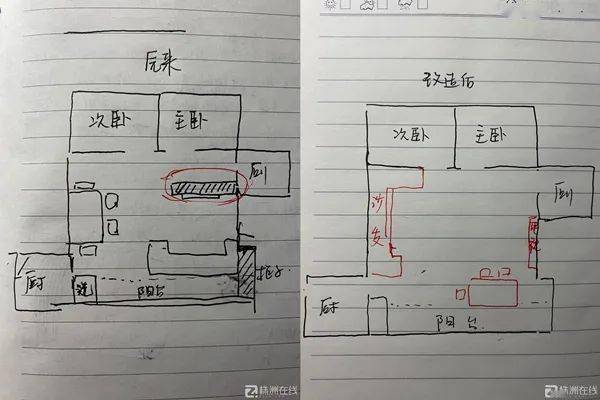 原来
次卧
主卧
厕
厨
洗
阳台
柜子
株洲在线
改造后
次卧
主卧
厕
沙发
电视
厨
阳台
株洲在线